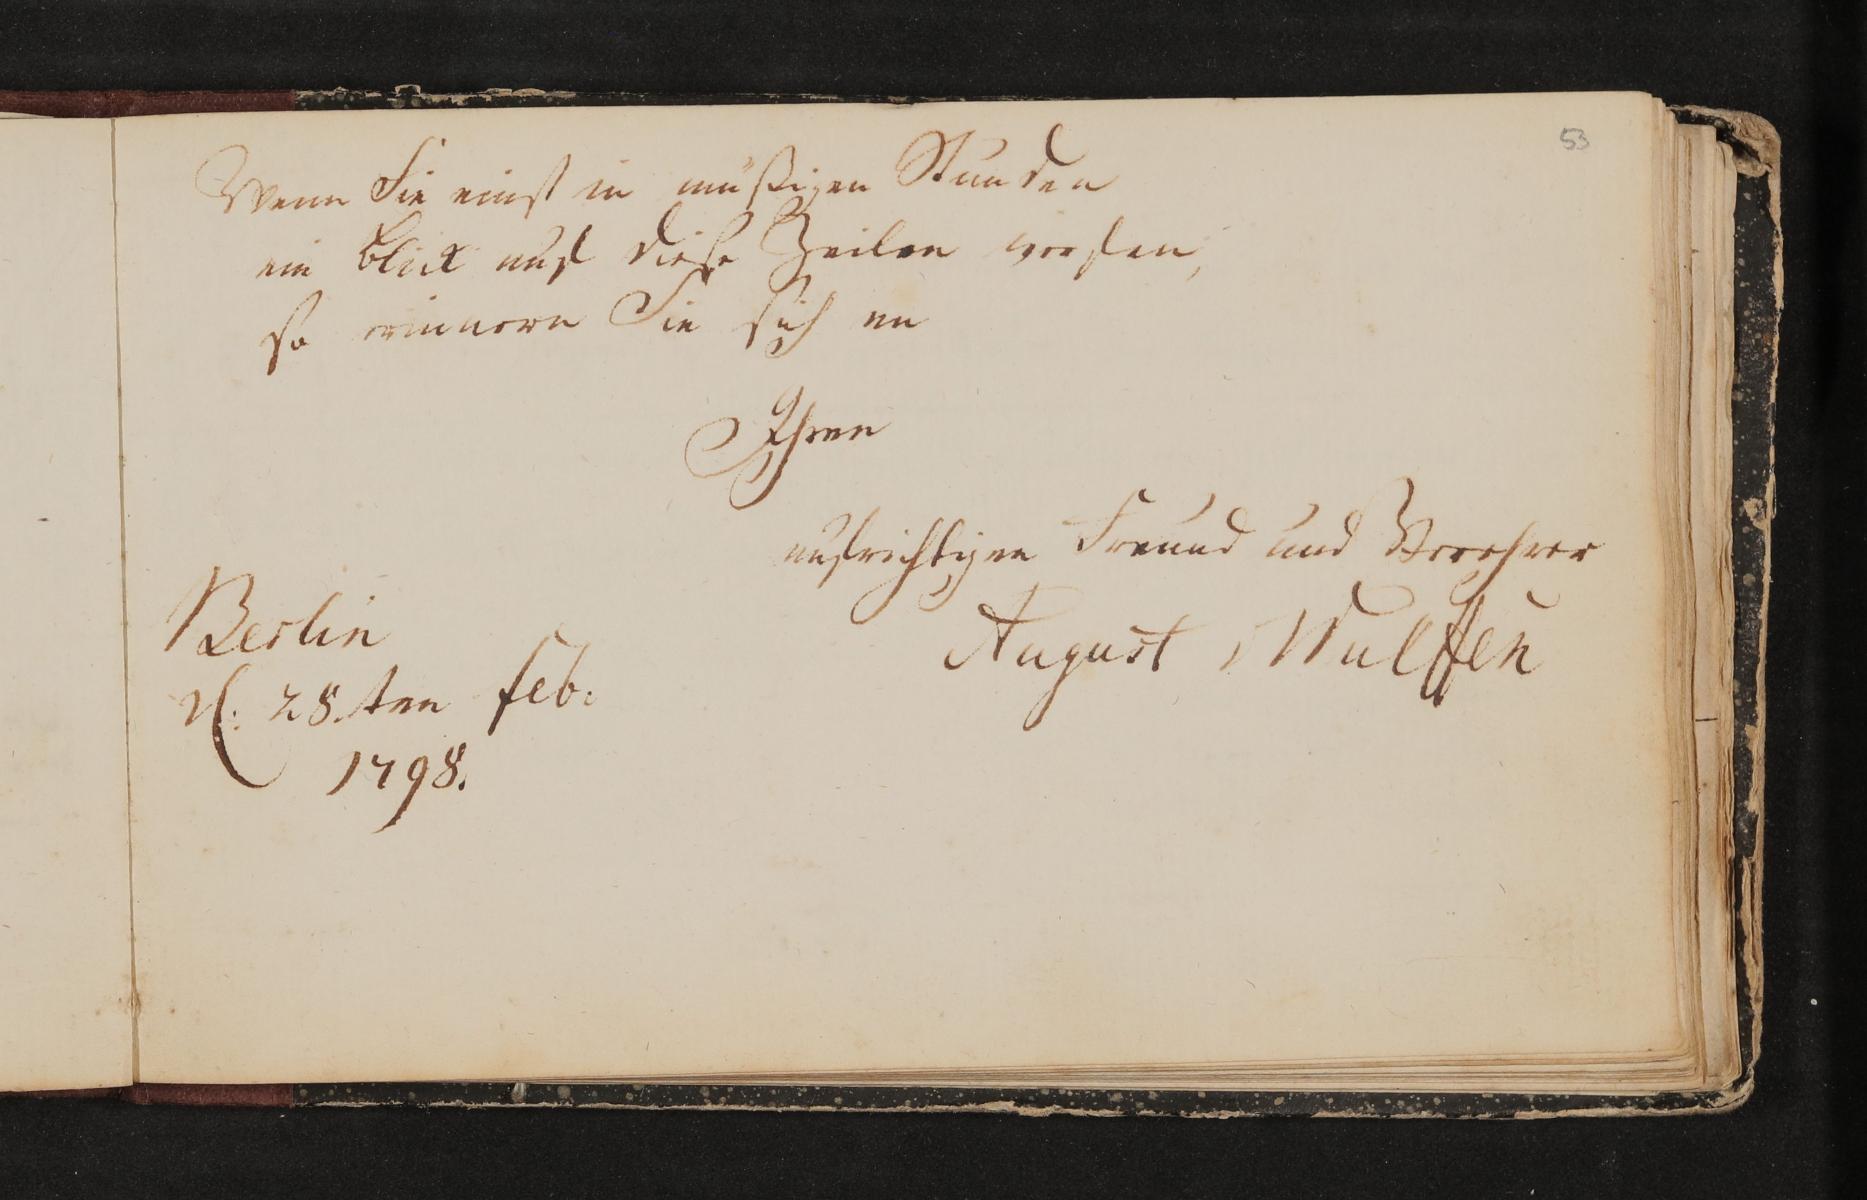 53
Wenn Sie einst in müßigen Stunden
ein Blick auf diese Zeilen werfen,
so erinnern Sie sich an
Ihren
aufrichtigen Freund und Verehrer
August v Wulffen
Berlin
d. 28.ten Feb.
1798.